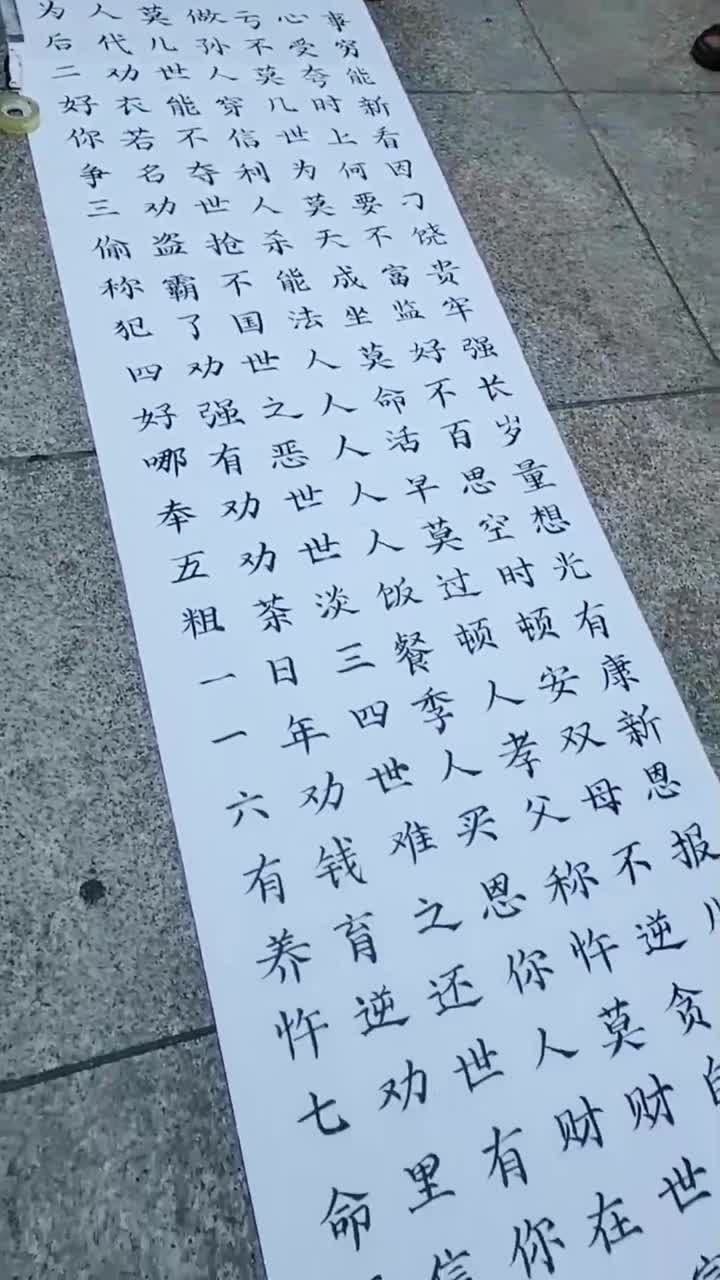 为人莫做亏心事
后代儿孙不受穷
二劝世人莫夸能
好衣能穿几时新
你若不信世上看
争名夺利为何因
三劝世人莫要刁
偷盗抢杀天不饶
称霸不能成富贵
犯了国法坐监牢
四劝世人莫好强
好强之人命不长
哪有恶人活百岁
奉劝世人早思量
五劝世人莫空想
粗茶淡饭过时光
一日三餐顿顿有
一年四季人安康
六劝世人孝双新
有钱难买父母恩
养育之恩称不报
忤逆还你忤逆儿
七劝世人莫贪
命里有财财自
信你在世